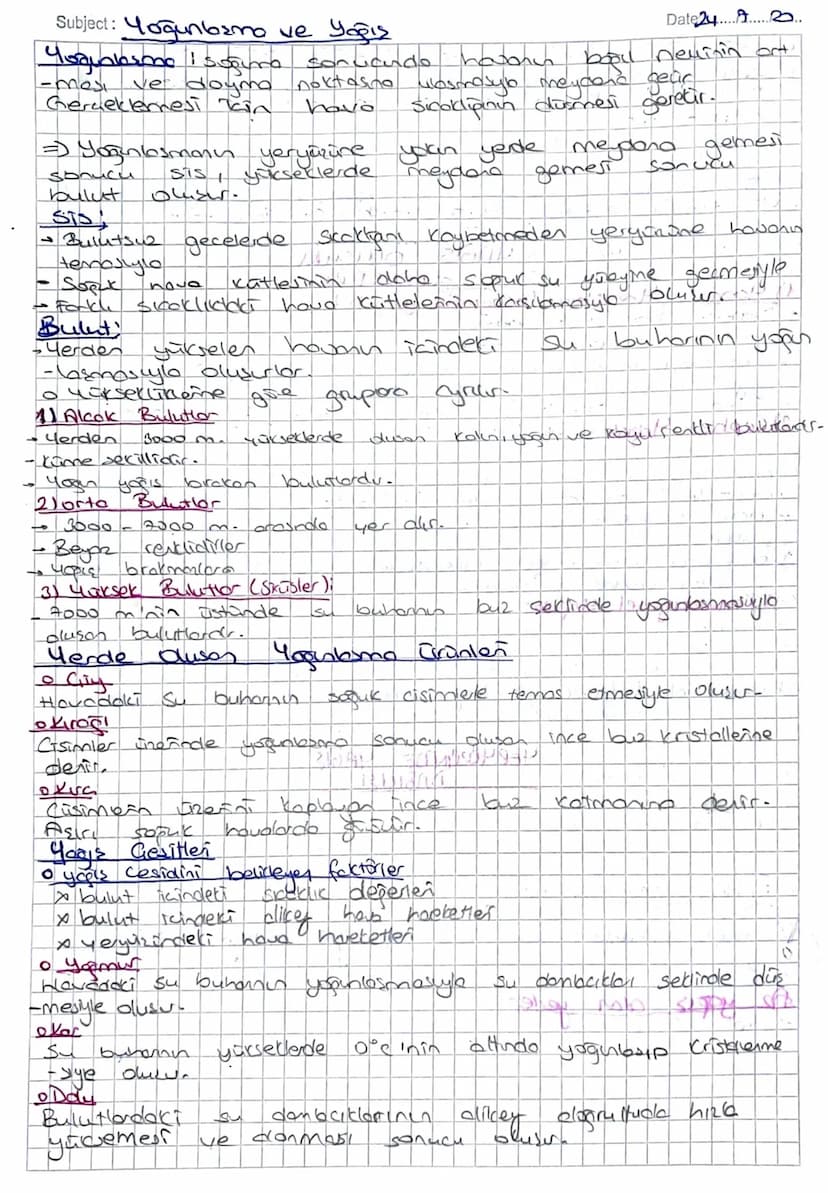 Subject: Yoğunlaşma ve Yağış
Date 24....A.....20..
Yoğunlaşma: soğuma sonucunda havanın bağıl neminin art
-ması ve doyma noktasına ulaşmasıyla meydana gelir
Gerçeklemesi için hava sıcaklığının düşmesi gerekir.
⇒ Yoğunlaşmanın yeryüzüne yakın yerde meydana gemesi
sonucu sis, yükseklerde meydana gemesi sonucu
bulut oluşur.
Sis:
→ Bulutsuz gecelerde sıcaklığını kaybetmeden yeryüzüne havanın
temasıyla
- Soğuk hava kütlesinin daha soğuk su yüzeyine geçmesiyle
→ Farklı sıcaklıktaki hava kütlelerinin karşılaşmasıyla oluşur.
Bulut:
→ Yerden yükselen havanın içindeki su buharının yoğun
-laşmasıyla oluşurlar.
o Yüksekliğine göre gruplara ayrılır.
1) Alçak Bulutlar
→ Yerden 3000 m. yükseklerde oluşan kalın, yoğun ve koyu renkli bulutlardır.
- Küme şekillidir.
→ Yoğun yağış bırakan bulutlardır.
2) Orta Bulutlar
→ 3000 - 7000 m. arasında yer alır.
→ Beyaz renklidirler
→ Yağış bırakmazlar
3) Yüksek Bulutlar (Sirüsler):
- 7000 m'nin üstünde su buharının buz şeklinde yoğunlaşmasıyla
oluşan bulutlardır.
Yerde Oluşan Yoğunlaşma Ürünleri
o Çiy
Havadaki su buharının soğuk cisimlerle temas etmesiyle oluşur.
o Kırağı
Cisimler üzerinde yoğunlaşma sonucu oluşan ince buz kristallerine
denir.
o Kırç
Cisimlerin üzerini kaplayan ince buz katmanına denir.
Aşırı soğuk havalarda
Yağış Çeşitleri
o yağış çeşidini belirleyen faktörler
x bulut içindeki sıcaklık değerleri
x bulut içindeki dikey hava hareketleri
x yeryüzündeki hava hareketleri
o Yağmur
Havadaki su buharının yoğunlaşmasıyla su damlacıkları şeklinde düş
-mesiyle oluşur.
o Kar
Su buharının yükseklerde 0°C'nin altında yoğunlaşıp kristallenme
-siyle oluşur.
o Dolu
Bulutlardaki su damlacıklarının dikey doğrultuda hızla
yükselmesi ve donması sonucu oluşur.